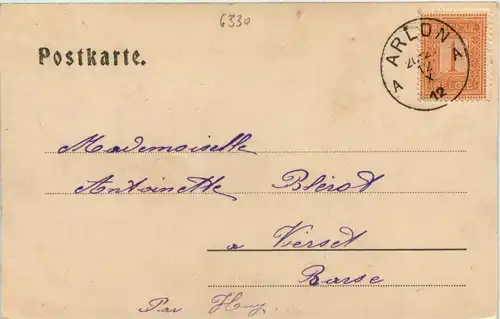 6330
Postkarte.
ARLON
A A
12
1
Mademoiselle
Antoinette Blérot
a Vierset
Barse
Par Huy